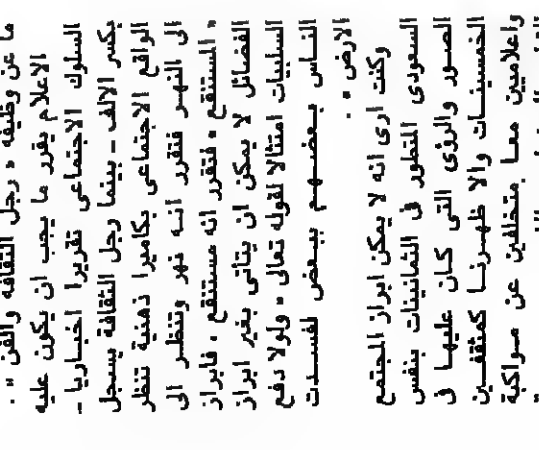 ما عن وظيفة « رجل الثقافة والفن » .
الاعلام يقرر ما يجب ان يكون عليه
السلوك الاجتماعى تقريرا اخباريا -
بكسر الالف - بينما رجل الثقافة يسجل
الواقع الاجتماعى بكاميرا ذهنية تنظر
الى النهر فتقرر انه نهر وتنظر الى
« المستنقع » فتقرر انه مستنقع ، فابراز
الفضائل لا يمكن ان يتاتى بغير ابراز
السلبيات امتثالا لقوله تعالى « ولولا دفع
الناس بعضهم ببعض لفسدت
الارض » .
وكنت ارى انه لا يمكن ابراز المجتمع
السعودى المتطور فى الثمانينات بنفس
الصور والرؤى التى كان عليها فى
الخمسينات والا ظهرنا كمثقفين
واعلاميين معا متخلفين عن مواكبة